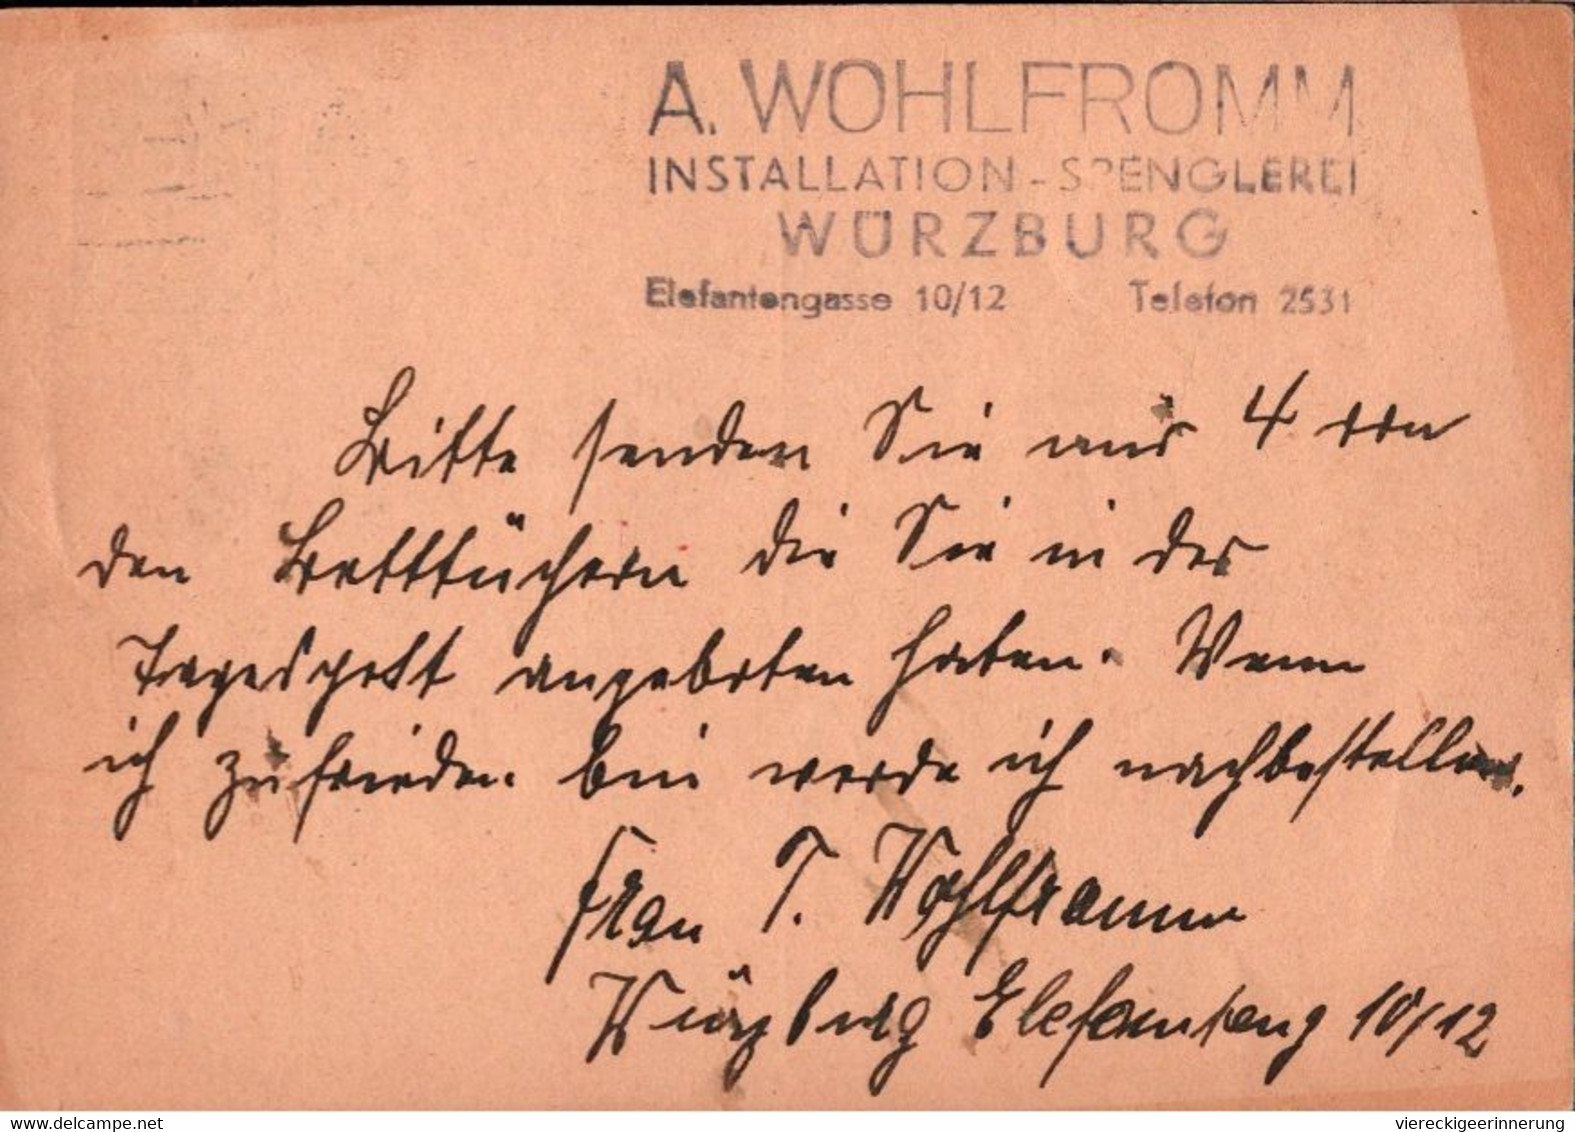 A. WOHLFROMM
INSTALLATION - SPENGLEREI
WÜRZBURG
Elefantengasse 10/12 Telefon 2531
Bitte senden Sie uns 4 von
den Betttüchern die Sie in der
Tagespost angeboten haben. Wenn
ich zufrieden bin werde ich nachbestellen.
Frau T. Wohlfromm
Würzburg Elefanteng 10/12
delcampe.net
viereckigeerinnerung